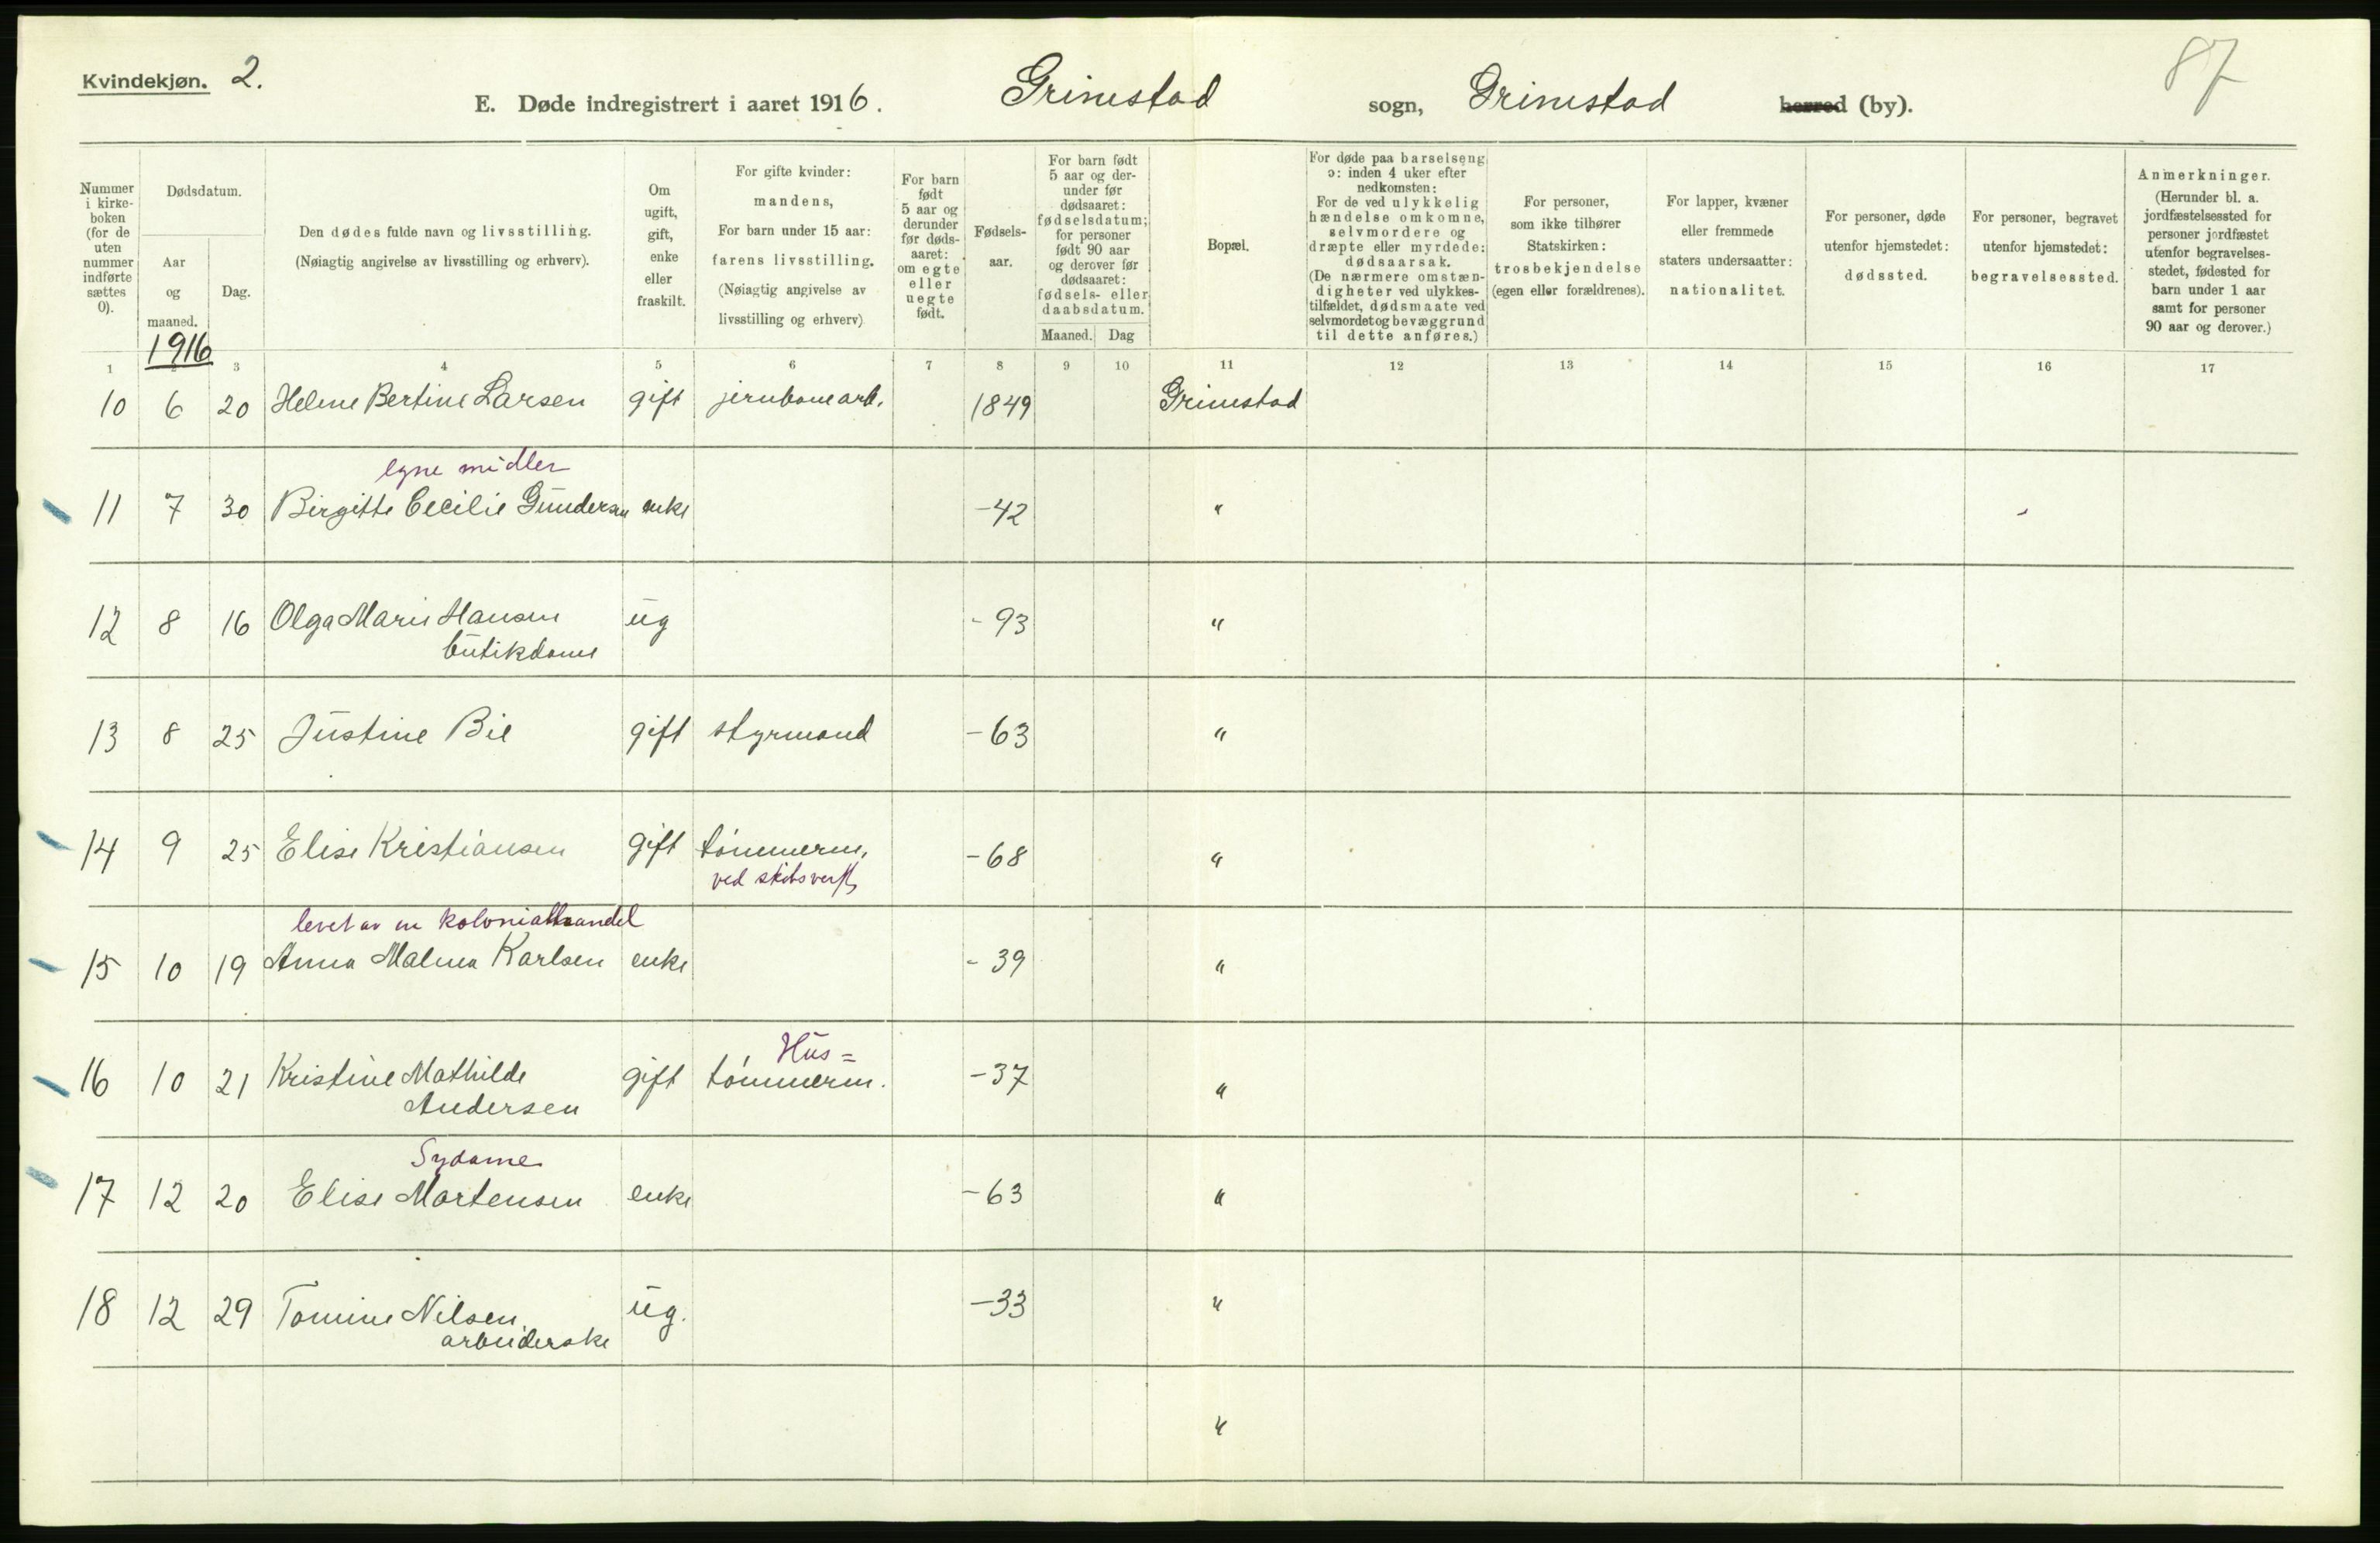 Kvindekjøn. 2.
87
E. Døde indregistrert i aaret 1916. Grimstad sogn, Grimstad herred (by).
Nummer i kirkeboken (for de uten nummer indførte sættes 0).
Dødsdatum.
Aar og maaned.
Dag.
Den dødes fulde navn og livsstilling.
(Nøiagtig angivelse av livsstilling og erhverv).
Om ugift, gift, enke eller fraskilt.
For gifte kvinder: mandens,
For barn under 15 aar: farens livsstilling.
(Nøiagtig angivelse av livsstilling og erhverv)
For barn født 5 aar og derunder før dødsaaret: om egte eller uegte født.
Fødselsaar.
For barn født 5 aar og derunder før dødsaaret: fødselsdatum; for personer født 90 aar og derover før dødsaaret: fødsels- eller daabsdatum.
Maaned. Dag
Bopæl.
For døde paa barselseng ɔ: inden 4 uker efter nedkomsten:
For de ved ulykkelig hændelse omkomne, selvmordere og dræpte eller myrdede: dødsaarsak.
(De nærmere omstændigheter ved ulykkestilfældet, dødsmaate ved selvmordet og bevæggrund til dette anføres.)
For personer, som ikke tilhører Statskirken: trosbekjendelse (egen eller forældrenes).
For lapper, kvæner eller fremmede staters undersaatter: nationalitet.
For personer, døde utenfor hjemstedet: dødssted.
For personer, begravet utenfor hjemstedet: begravelsessted.
Anmerkninger.
(Herunder bl. a. jordfæstelsessted for personer jordfæstet utenfor begravelsesstedet, fødested for barn under 1 aar samt for personer 90 aar og derover.)
1916
1 2 3 4 5 6 7 8 9 10 11 12 13 14 15 16 17
10 6 20 Helene Bertine Larsen gift jernbanearb. 1849 Grimstad
egne midler
11 7 30 Birgitte Cecilie Gundersen enke -42 "
12 8 16 Olga Marie Hansen ug -93 "
butikdame
13 8 25 Justine Bie gift styrmand -63 "
14 9 25 Elise Kristiansen gift tømmerm. -68 "
ved skibsverft
levet av en kolonialhandel
15 10 19 Anna Malena Karlsen enke -39 "
Hus=
16 10 21 Kristine Mathilde gift tømmerm. -37 "
Andersen
Sydame
17 12 20 Elise Martensen enke -63 "
18 12 29 Tomine Nilsen ug. -33 "
arbeiderske
"